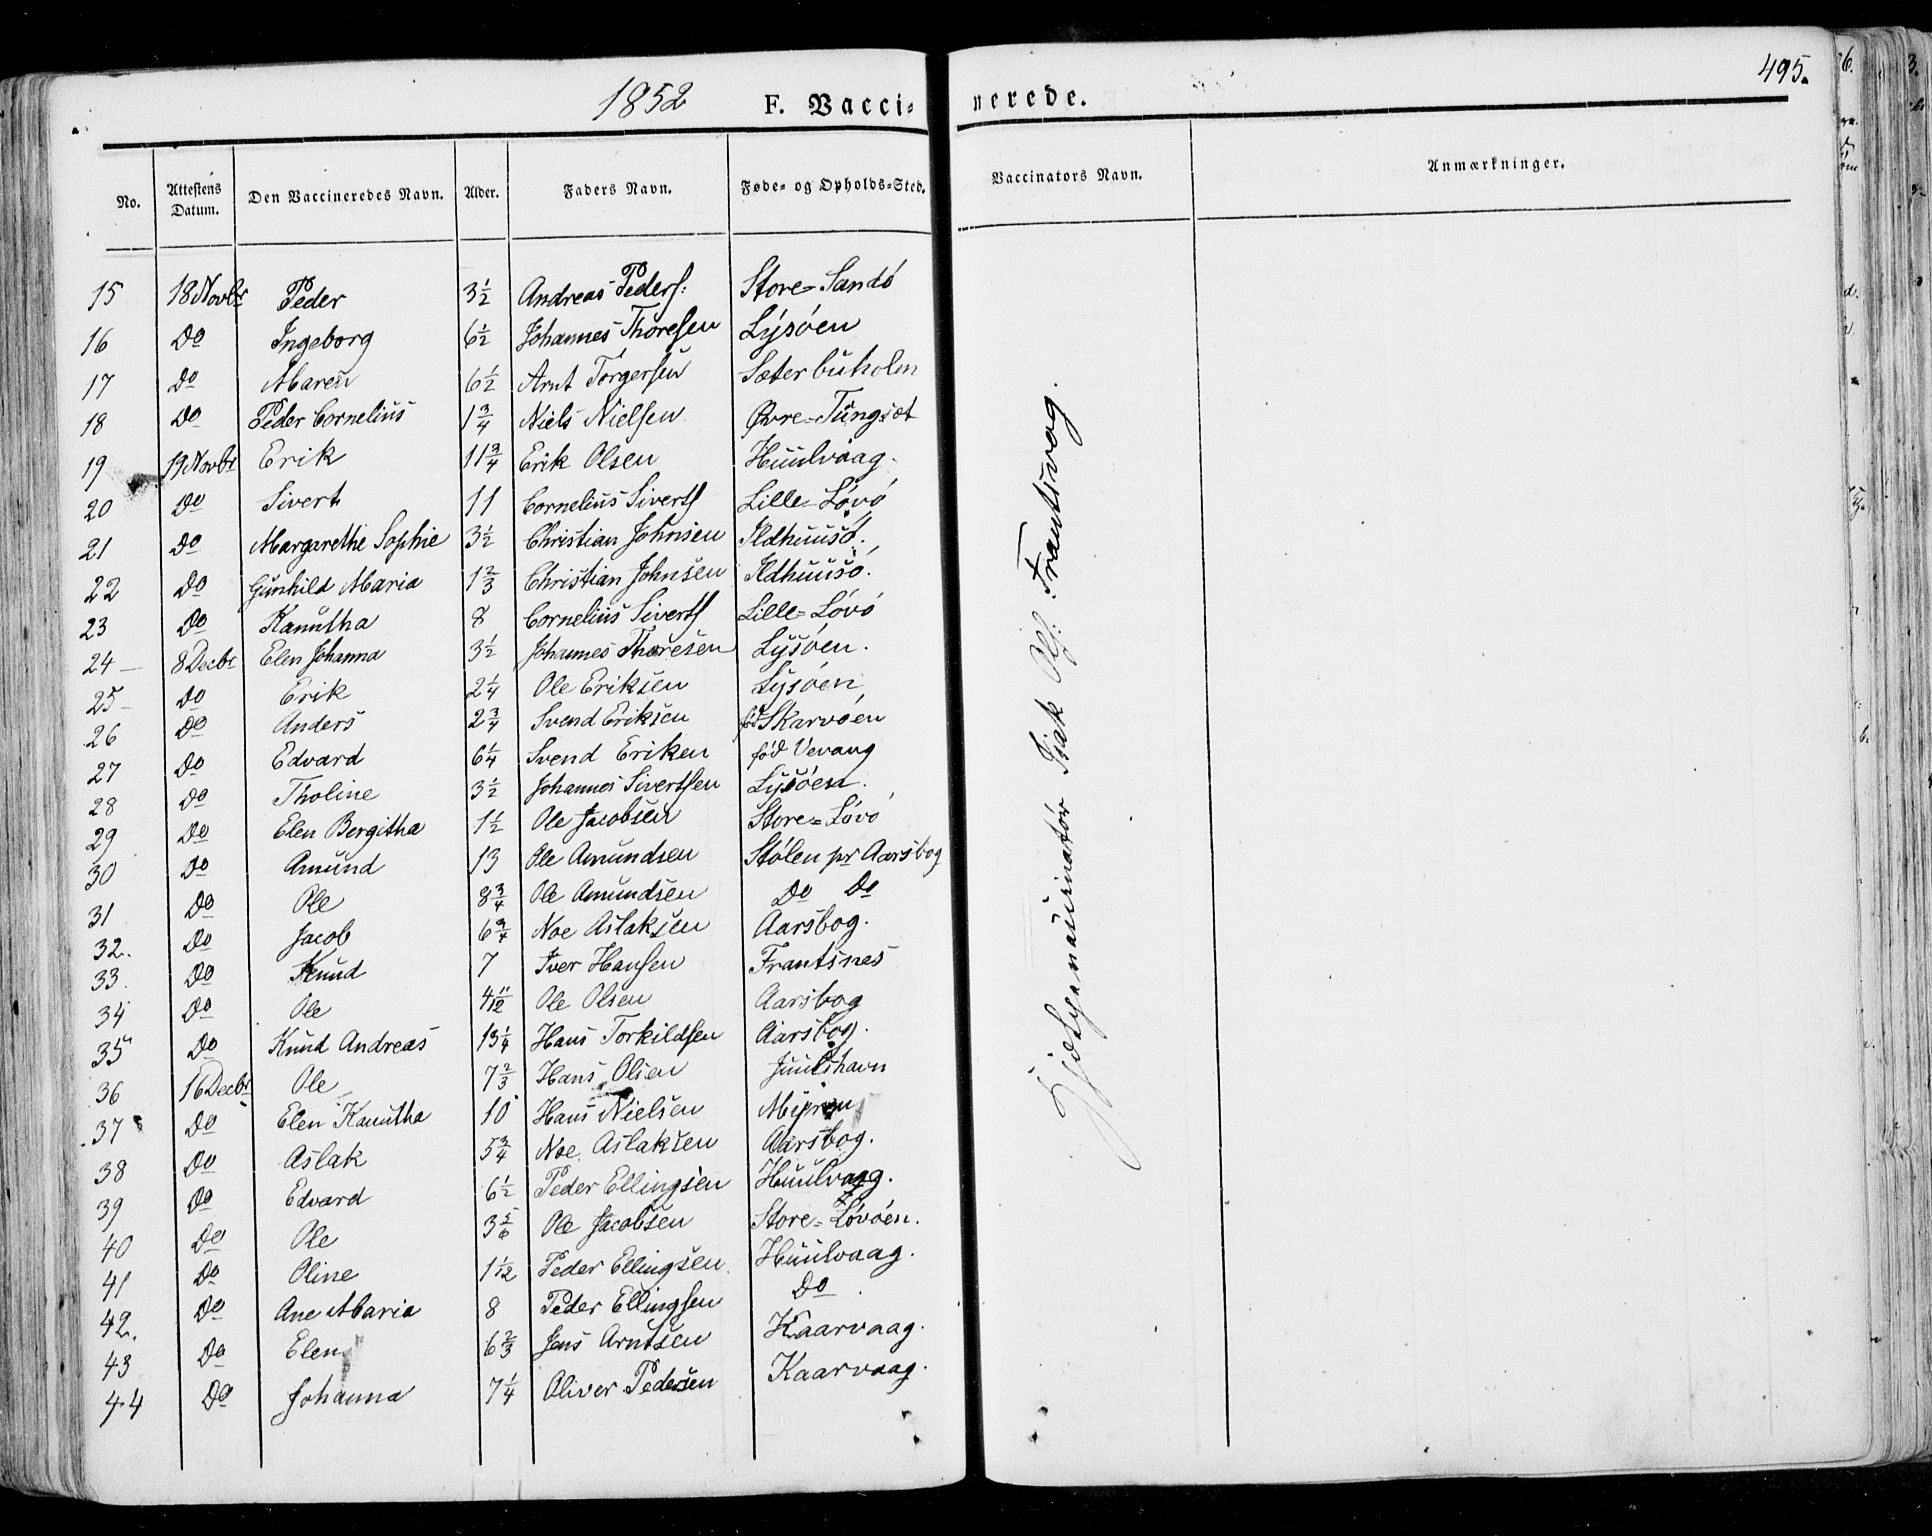 1852 F. Vaccinerede. 495.
No. Attestens Datum. Den Vaccineredes Navn. Alder. Faders Navn. Føde- og Opholds-Sted. Vaccinators Navn. Anmærkninger.
15 18 Novbr Peder 3 1/2 Andreas Peders: Store-Sandø
16 Do Ingeborg 6 1/2 Johannes Thoresen Lysøen
17 Do Maren 6 1/2 Arnt Torgersen Sæterbuholm
18 Do Peder Cornelius 1 3/4 Niels Nielsen Øvre-Tungsæt
19 19 Novbr Erik 11 3/4 Erik Olsen Huulvaag.
20 Do Sivert 11 Cornelius Siverts Lille-Løvø
21 Do Margarethe Sophie 3 1/2 Christian Johnsen Ildhuusø.
22 Do Gunhild Maria 1 2/3 Christian Johnsen Ildhuusø.
23 Do Kanutha 8 Cornelius Siverts Lille-Løvø
24 8 Decbr Elen Johanna 3 1/2 Johannes Thoresen Lysøen.
25 Do Erik 2 1/4 Ole Eriksen Lysøen
26 Do Anders 2 3/4 Svend Eriksen fød Skarvøen
27 Do Edvard 6 1/4 Svend Eriken fød Vevang
28 Do Tholine 3 1/2 Johannes Sivertsen Lysøen.
29 Do Elen Bergitha 1 1/2 Ole Jacobsen Store-Løvø
30 Do Amund 13 Ole Amundsen Stølen pr Aarsbog
31 Do Ole 8 3/4 Ole Amundsen Do Do
32. Do Jacob 6 3/4 Noe Aslaksen Aarsbog.
33. Do Knud 7 Iver Hansen Frantsnes
34 Do Ole 4 11/12 Ole Olsen Aarsbog
35 Do Knud Andreas 13 1/4 Hans Torkildsen Aarsbog.
36 16 Decbr Ole 7 2/3 Hans Olsen Juulshavn
37 Do Elen Kanutha 10 Hans Nielsen Myren
38 Do Aslak 5 3/4 Noe Aslaksen Aarsbog.
39 Do Edvard 6 1/2 Peder Ellingsen Huulvaag.
40 Do Ole 3 5/6 Ole Jacobsen Store-Løvøen.
41 Do Oline 1 1/12 Peder Ellingsen Huulvaag.
42. Do Ane Maria 8 Peder Ellingsen Do
43 Do Elen 6 2/3 Jens Arntsen Kaarvaag.
44 Do Johanna 7 1/4 Oliver Pedersen Kaarvaag.
Isak Ols: Frantsvog.